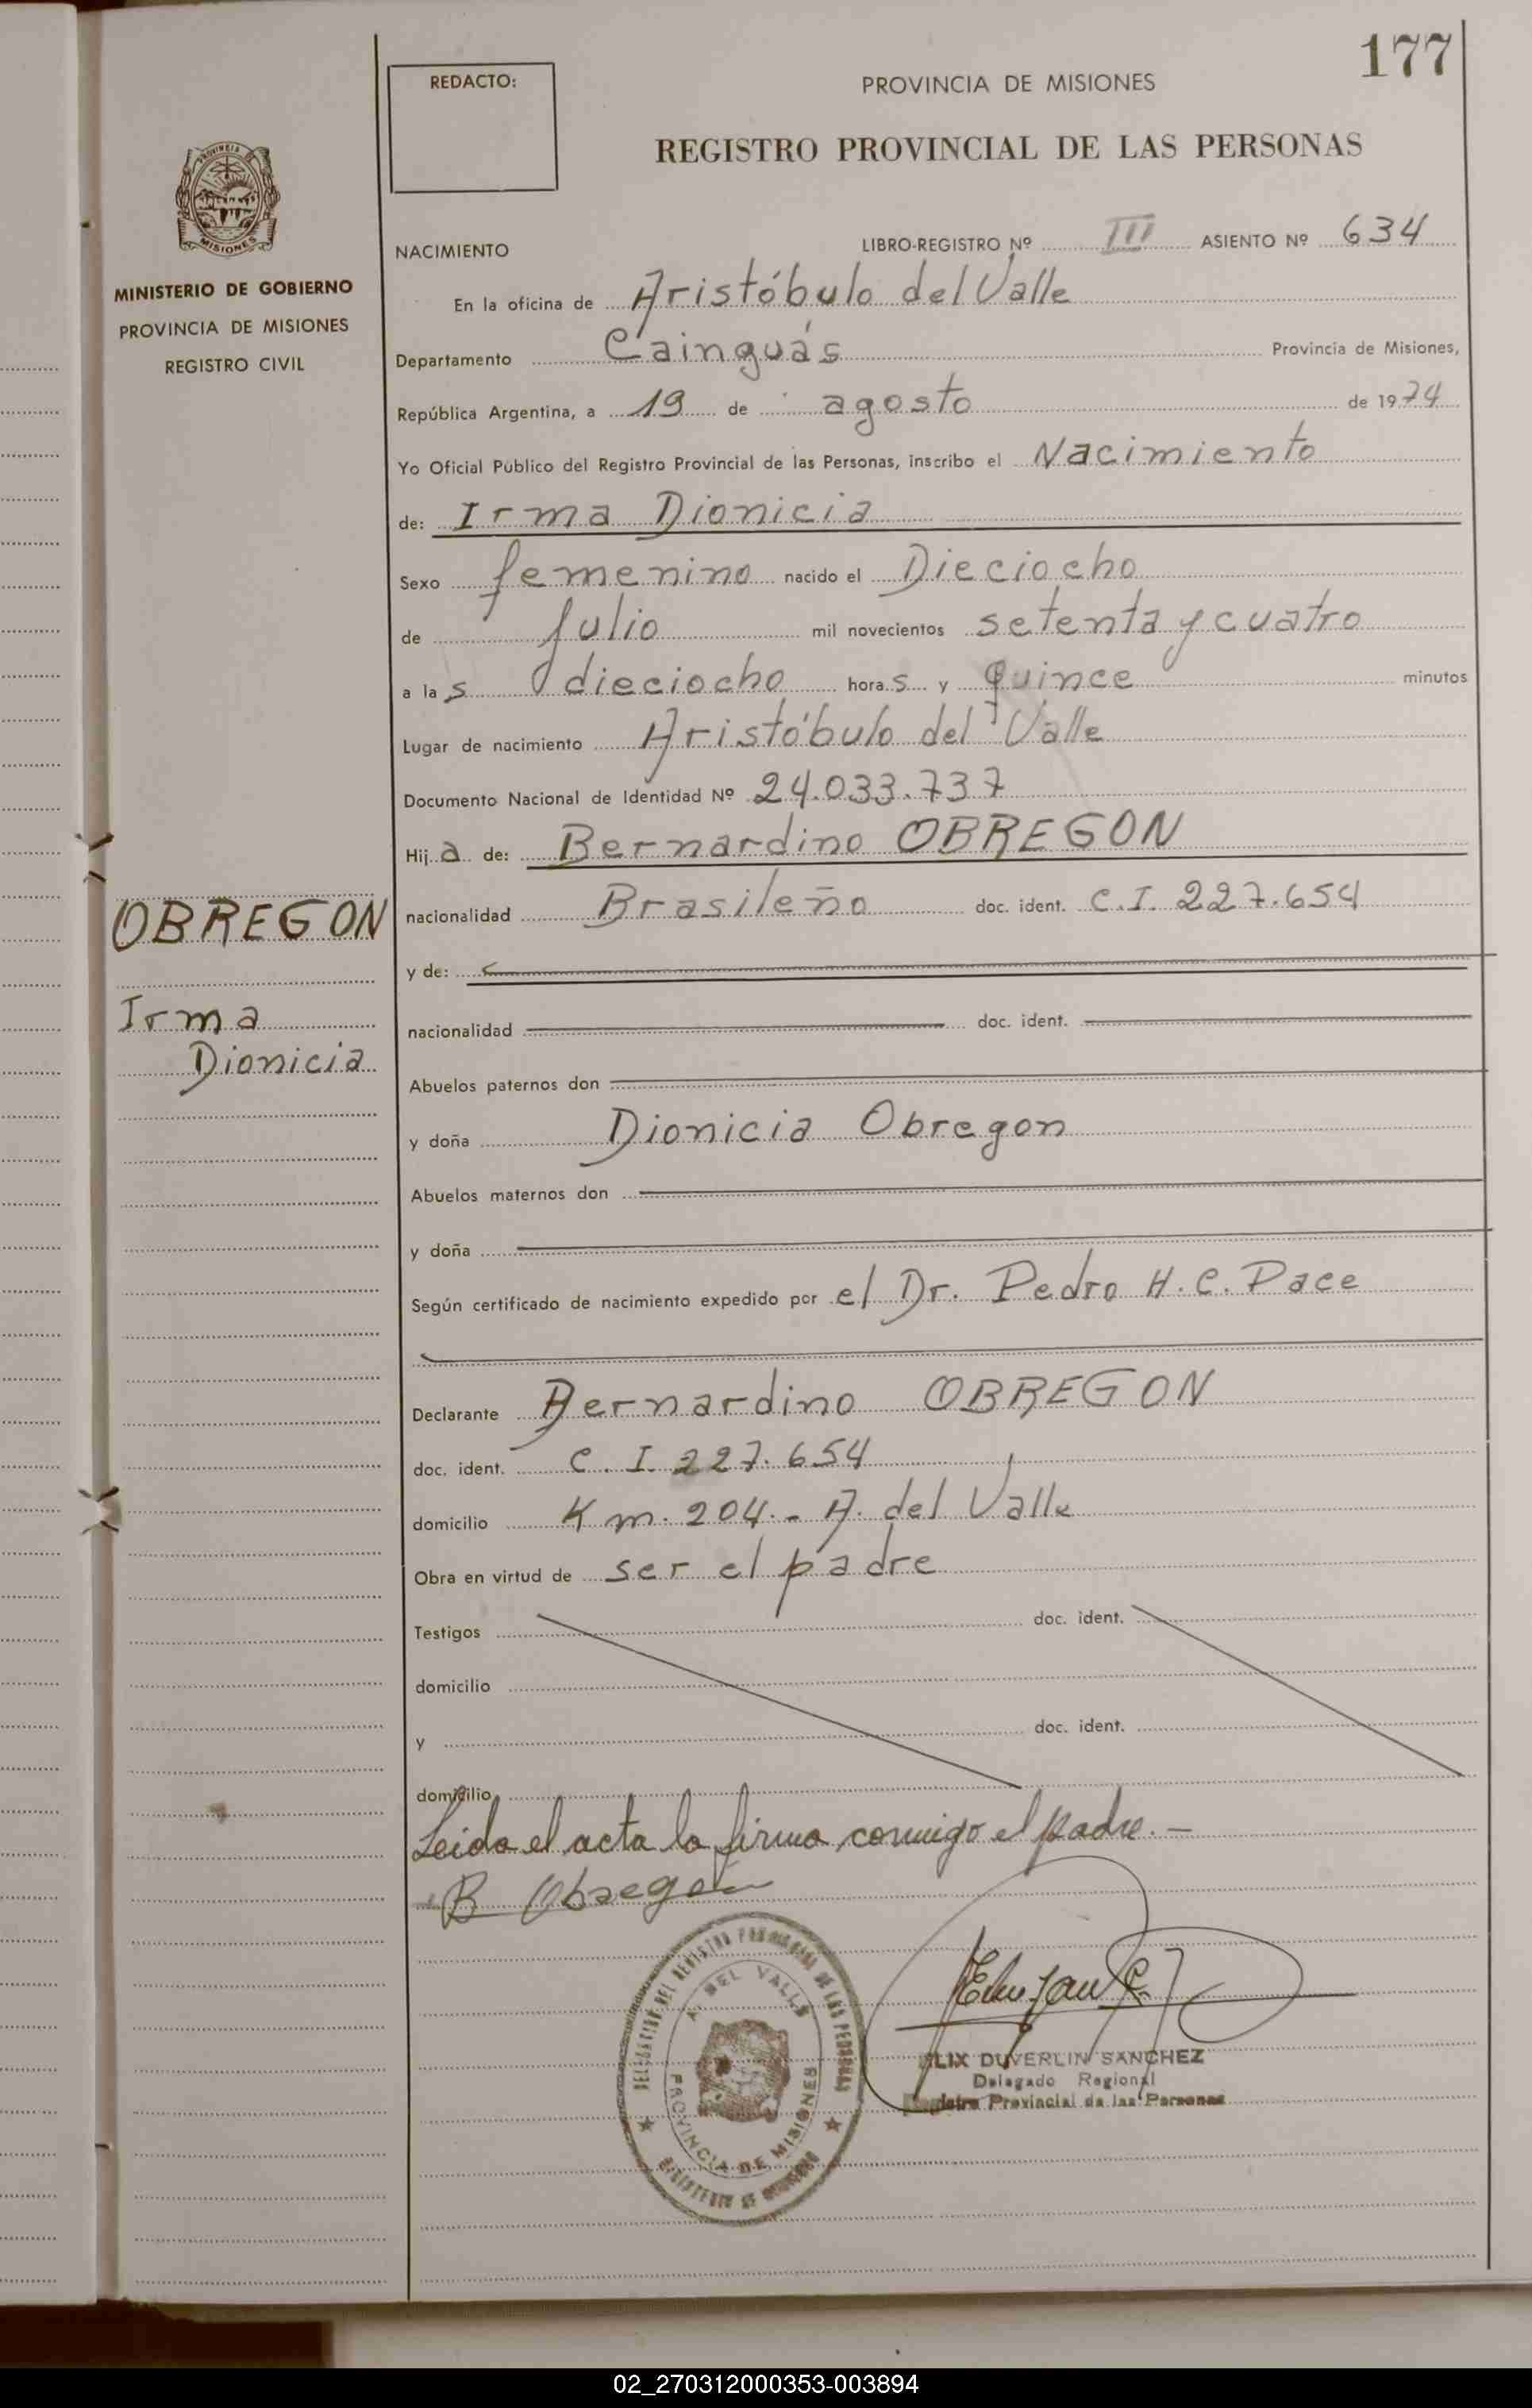 177
REDACTO:
PROVINCIA DE MISIONES
REGISTRO PROVINCIAL DE LAS PERSONAS
PROVINCIA DE
MISIONES
MINISTERIO DE GOBIERNO
PROVINCIA DE MISIONES
REGISTRO CIVIL
NACIMIENTO LIBRO-REGISTRO Nº III ASIENTO Nº 634
En la oficina de Aristóbulo del Valle
Departamento Cainguás Provincia de Misiones,
República Argentina, a 19 de agosto de 1974
Yo Oficial Público del Registro Provincial de las Personas, inscribo el Nacimiento
de: Irma Dionicia
Sexo femenino nacido el Dieciocho
de Julio mil novecientos setenta y cuatro
a las dieciocho horas y quince minutos
Lugar de nacimiento Aristóbulo del Valle
Documento Nacional de Identidad Nº 24.033.737
Hija de: Bernardino OBREGON
OBREGON
nacionalidad Brasileño doc. ident. C.I. 227.654
y de:
Irma
Dionicia
nacionalidad doc. ident.
Abuelos paternos don
y doña Dionicia Obregon
Abuelos maternos don
y doña
Según certificado de nacimiento expedido por el Dr. Pedro H.C. Pace
Declarante Bernardino OBREGON
doc. ident. C.I. 227.654
domicilio Km. 204.- A. del Valle
Obra en virtud de ser el padre
Testigos doc. ident.
domicilio
y doc. ident.
domicilio
Leida el acta la firma conmigo el padre.-
B Obregon
DELEGACION DEL REGISTRO PROVINCIAL DE LAS PERSONAS
A. DEL VALLE
PROVINCIA DE MISIONES
MINISTERIO DE GOBIERNO
DUVERLIN SANCHEZ
Delegado Regional
Registro Provincial de las Personas
02_270312000353-003894